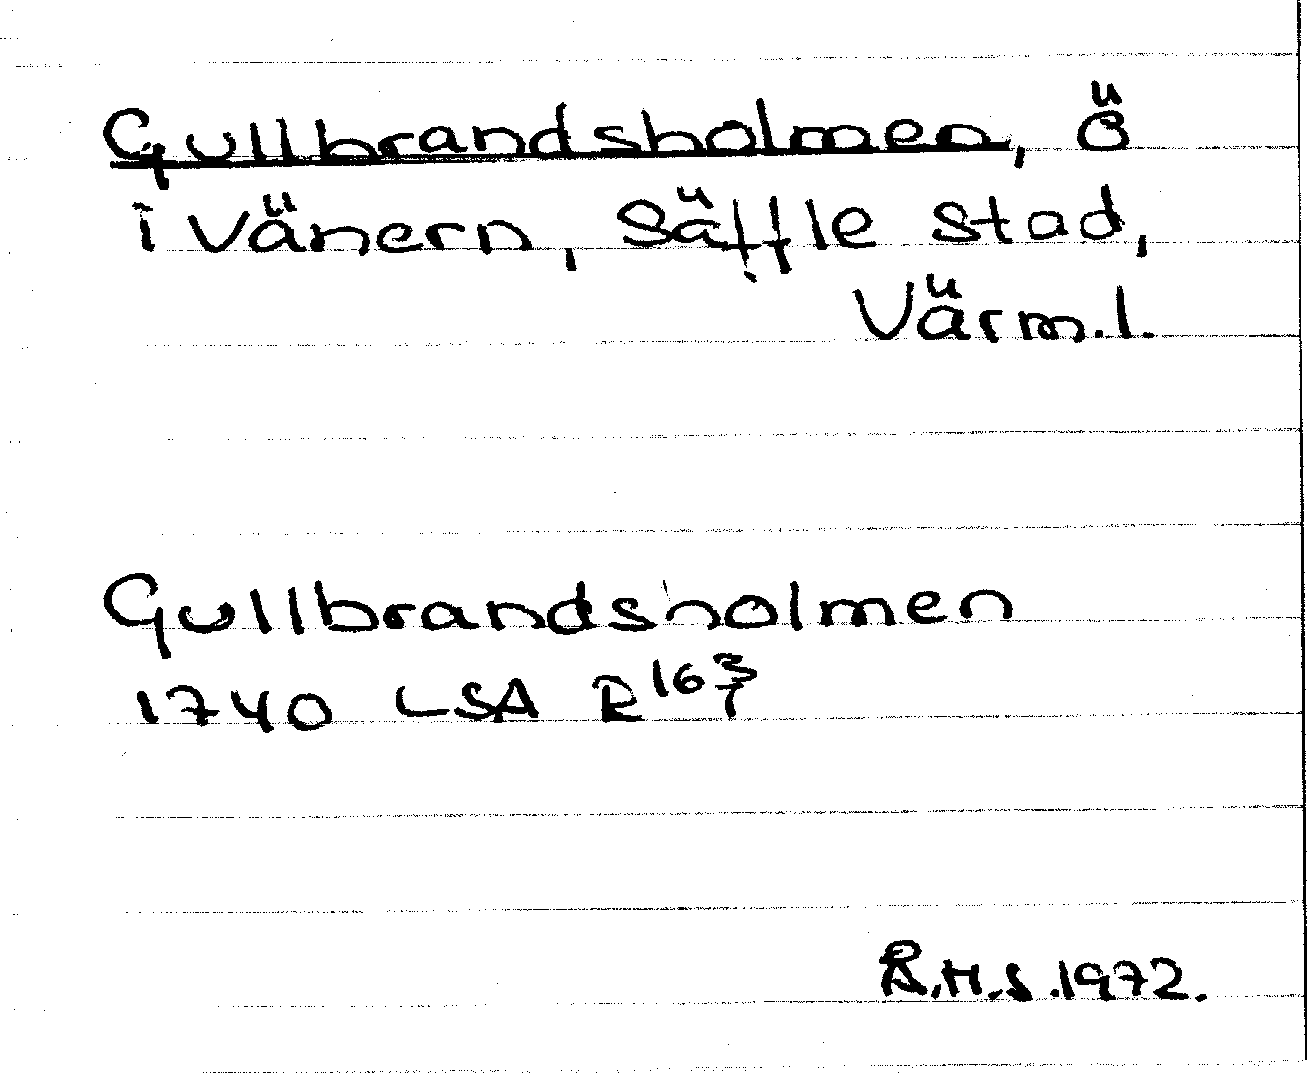 Gullbrandsholmen, ö
i Vänern, Säffle stad,
Värm.l.
Gullbrandsholmen
1740 LSA R 16 3/7
R.H.S. 1972.